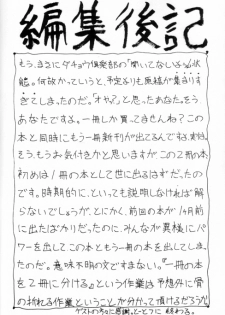 編集後記
もう、まさにダチョウ倶楽部の「聞いてないよォ」状
態。何故かっていうと、予定よりも原稿が集まりす
ぎてしまったのだ。「オヤ？」と思ったあなた。そう
あなたですよ。一冊しか買ってませんね？この
本と同時にもう一冊新刊が出てるんですよ。実は。
そう、もうお気付きかと思いますが、この2冊の本
初めは1冊の本として世に出るはずだったの
です。時期的に、といっても説明しなければ解
らないでしょうが、とにかく、前回の本が1ヶ月前
に出たばかりだったのに、みんなが異様にパ
ワーを出してこの本ともう一冊の本を出してしまっ
たのだ。意味不明の文ですまない。『一冊の本
を2冊に分ける』という作業は予想外に骨
の折れる作業ということが分かって頂けるだろうか
ゲストの方々に感謝。とーとつに終わる。